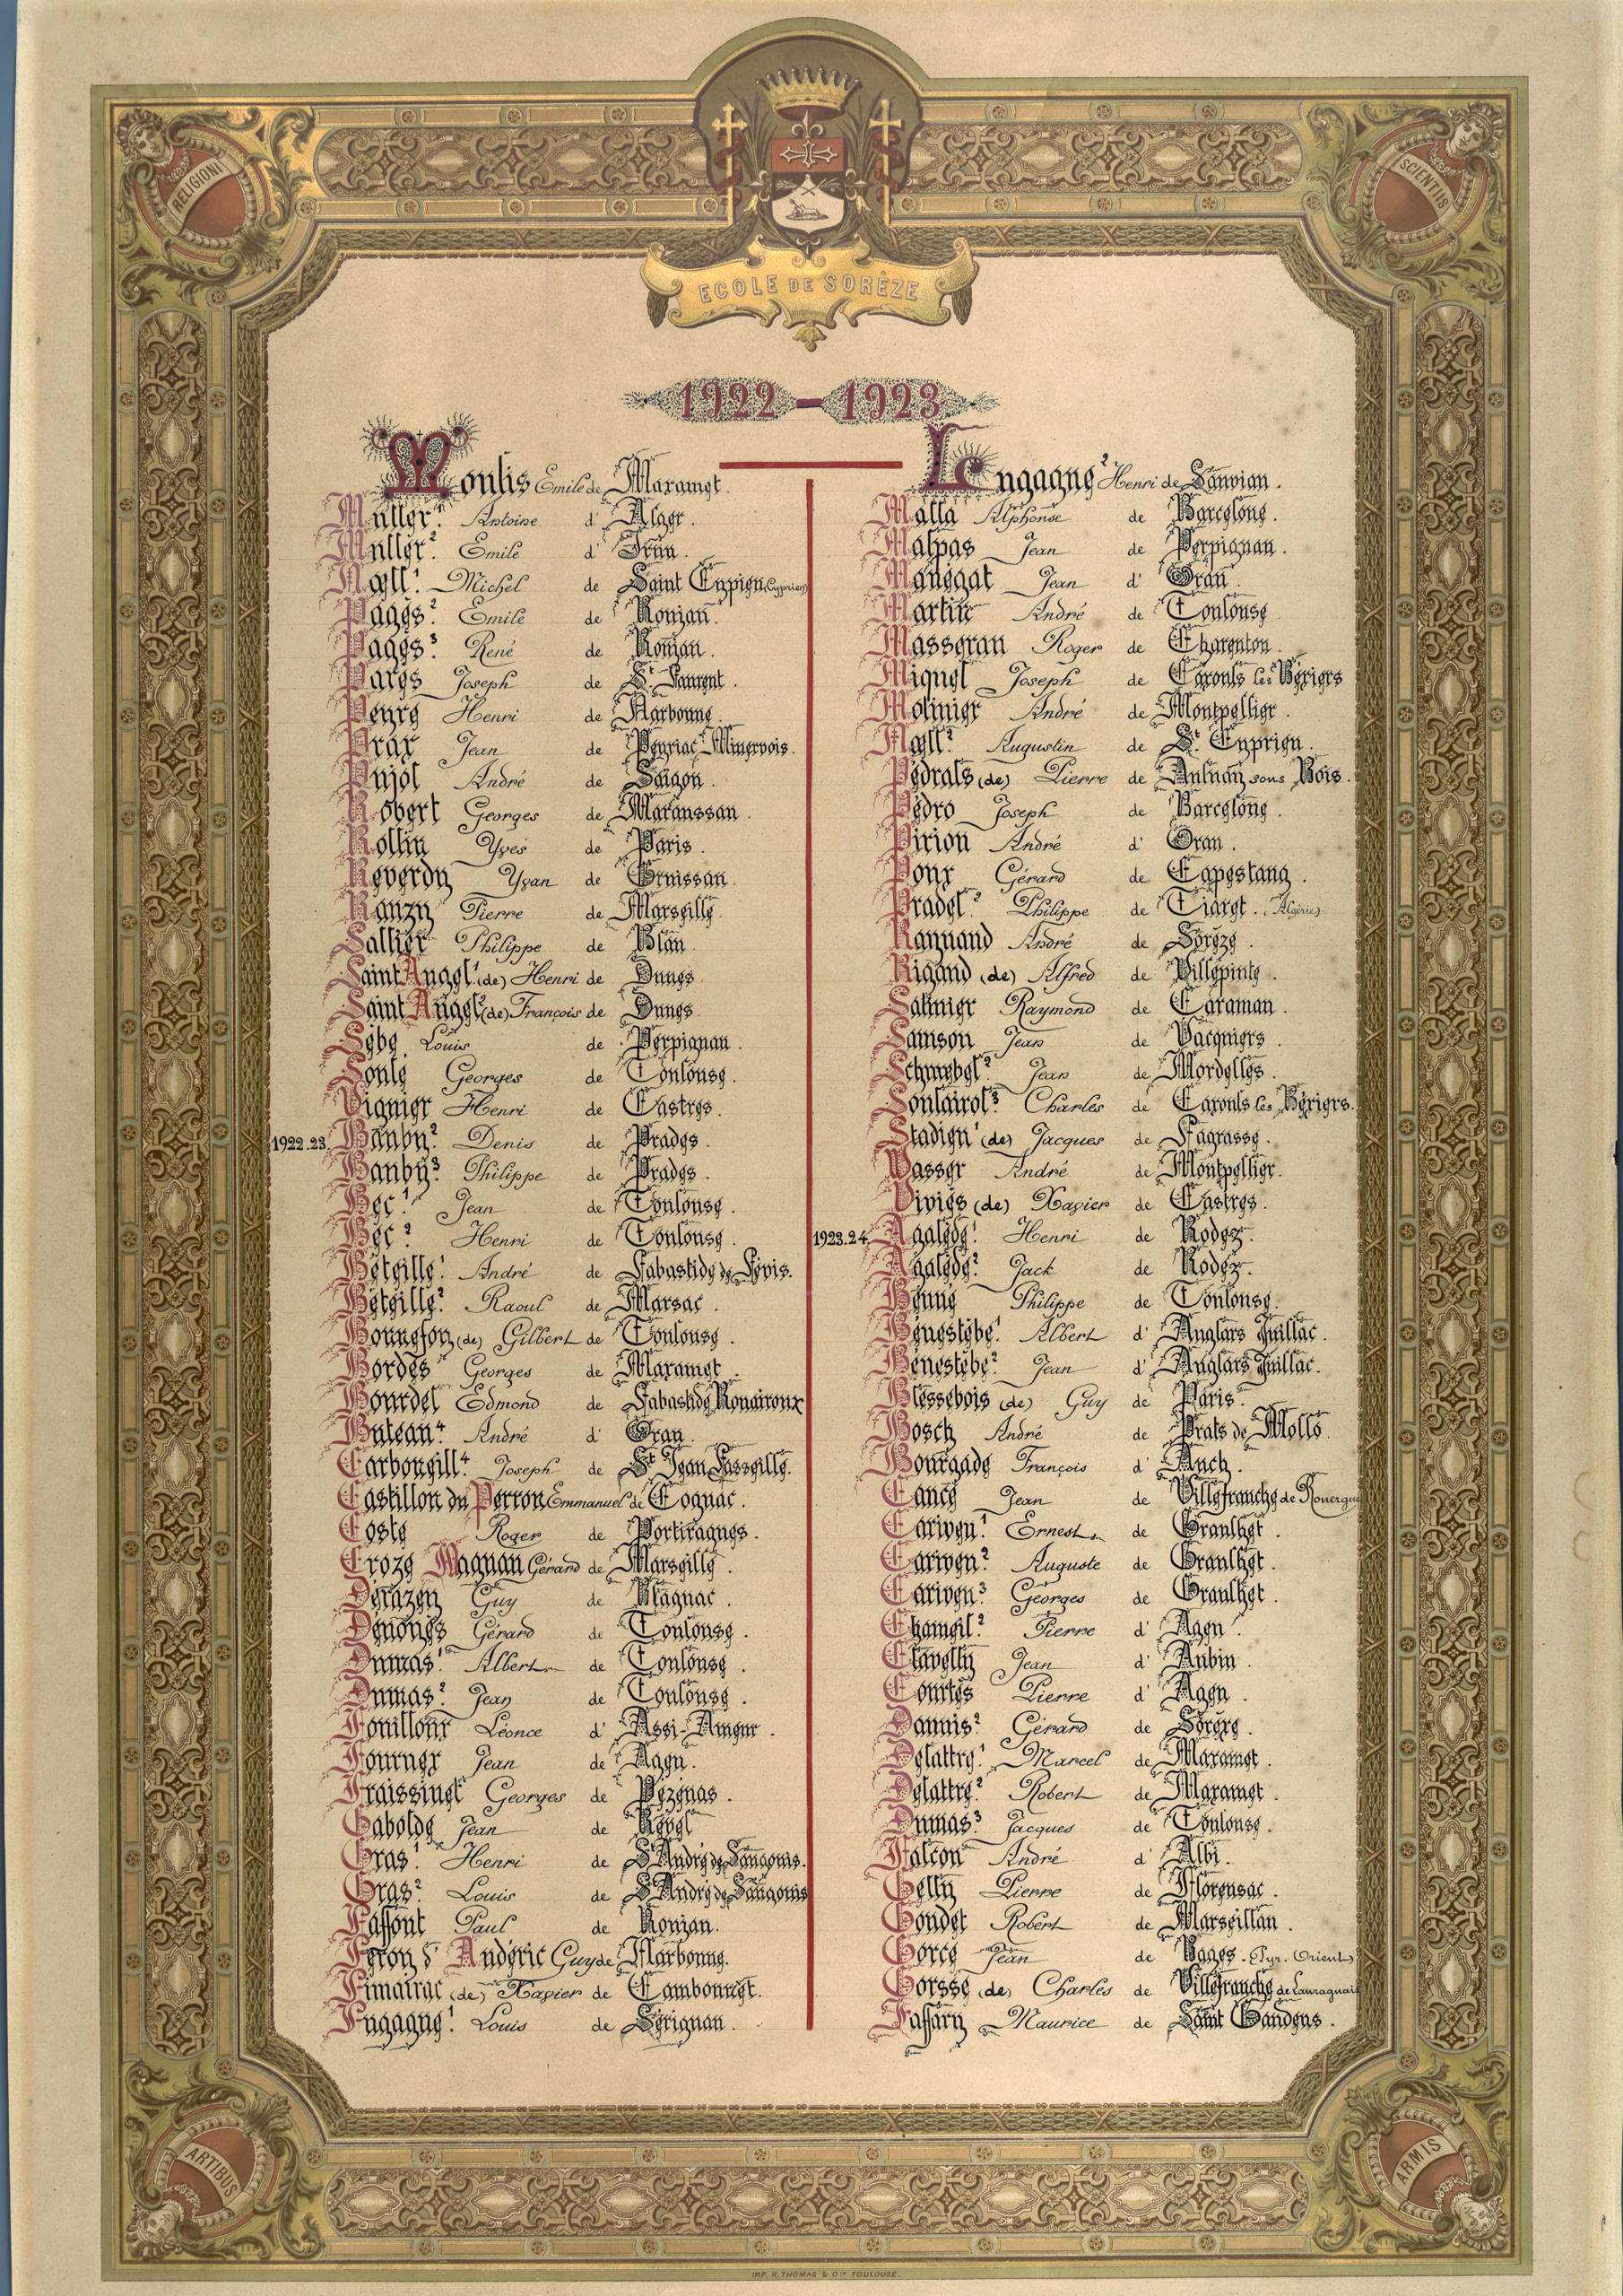 RELIGIONI
SCIENTIIS
ECOLE DE SORÈZE
1922 - 1923
Moulis Emile de Mazamet.
Muller 1. Antoine d' Alger.
Muller 2. Emile d'
Noell 1. Michel de Saint Cyprien (Cyprien)
Pagès 2. Emile de Roujan.
Pagès 3. René de Roujan.
Parès Joseph de St Laurent.
Peyre Henri de Narbonne.
Prax Jean de Peyriac-Minervois.
Pujol André de Saïgon.
Robert Georges de Maraussan.
Rollin Yves de Paris.
Reverdy Yvan de Gruissan.
Ranzy Pierre de Marseille.
Sallier Philippe de Blan.
Saint Angel 1. (de) Henri de Dunes.
Saint Angel 2 (de) François de Dunes.
Sèbe Louis de Perpignan.
Soule Georges de Toulouse.
Viguier Henri de Castres.
1922.23. Bauby 2. Denis de Prades.
Bauby 3. Philippe de Prades.
Bec 1. Jean de Toulouse.
Bec 2. Henri de Toulouse.
Béteille 1. André de Labastide de Lévis.
Béteille 2. Raoul de Marsac.
Bonnefon (de) Gilbert de Toulouse.
Bordes Georges de Mazamet.
Bourdel Edmond de Labastide Rouairoux
Buteau 4. André d' Oran.
Carboneill 4. Joseph de St Jean Lasseille.
Castillon du Perron Emmanuel de Cognac.
Coste Roger de Portiragnes.
Croze Magnan Gérard de Marseille.
Derazey Guy de Blagnac.
Denoyès Gérard de Toulouse.
Dumas 1. Albert de Toulouse.
Dumas 2. Jean de Toulouse.
Fouilloux Léonce d' Assi-Ameur.
Fournex Jean de Agen.
Fraissinet Georges de Pézenas.
Gabolde Jean de Revel
Gras 1. Henri de St André de Sangonis.
Gras 2. Louis de St André de Sangonis
Laffont Paul de Roujan.
Leron d' Andéric Guy de Narbonne.
Limairac (de) Xavier de Cambounet.
Lugagne 1. Louis de Sérignan.
Lengagne 2 Henri de Sauvian.
Malla Alphonse de Barcelone.
Malpas Jean de Perpignan.
Manégat Jean d' Oran.
Martin André de Toulouse
Masseran Roger de Charenton.
Miquel Joseph de Cazouls les Béziers
Molinier André de Montpellier.
Noell 2. Augustin de St. Cyprien.
Pédrals (de) Pierre de Aulnay sous Bois.
Pédro Joseph de Barcelone.
Pirion André d' Oran.
Poux Gérard de Capestang.
Pradel 2. Philippe de Tiaret. (Algérie)
Raynaud André de Sorèze.
Rigaud (de) Alfred de Villepinte.
Salinier Raymond de Caraman.
Samson Jean de Vacquiers.
Schnebel 2. Jean de Mordelles.
Soulairol 3. Charles de Cazouls les Béziers.
Stadieu 1 (de) Jacques de Lagrasse.
Vasser André de Montpellier.
Viviès (de) Xavier de Castres.
1923.24. Agalède 1. Henri de Rodez.
Agalède 2. Jack de Rodez.
Beyne Philippe de Toulouse.
Bénestèbe 1. Albert d' Anglars Juillac.
Bénestèbe 2. Jean d' Anglars Juillac.
Blessebois (de) Guy de Paris.
Bosch André de Prats de Mollo.
Bourgade François d' Auch.
Cance Jean de Villefranche de Rouergue
Cariven 1. Ernest de Graulhet.
Cariven 2. Auguste de Graulhet.
Cariven 3. Georges de Graulhet.
Chameil 2. Pierre d' Agen.
Clavelly Jean d' Aubin.
Courtès Pierre d' Agen.
Daunis 2. Gérard de Sorèze.
Delattre 1. Marcel de Mazamet.
Delattre 2. Robert de Mazamet.
Dumas 3. Jacques de Toulouse.
Falcon André d' Albi.
Gelly Pierre de Florensac.
Goudet Robert de Marseillan.
Gorce Jean de Bages. Pyr. Orient)
Gorsse (de) Charles de Villefranche de Lauraguais
Laffary Maurice de Saint Gaudens.
ARTIBUS
ARMIS
IMP. R. THOMAS & Cie TOULOUSE.